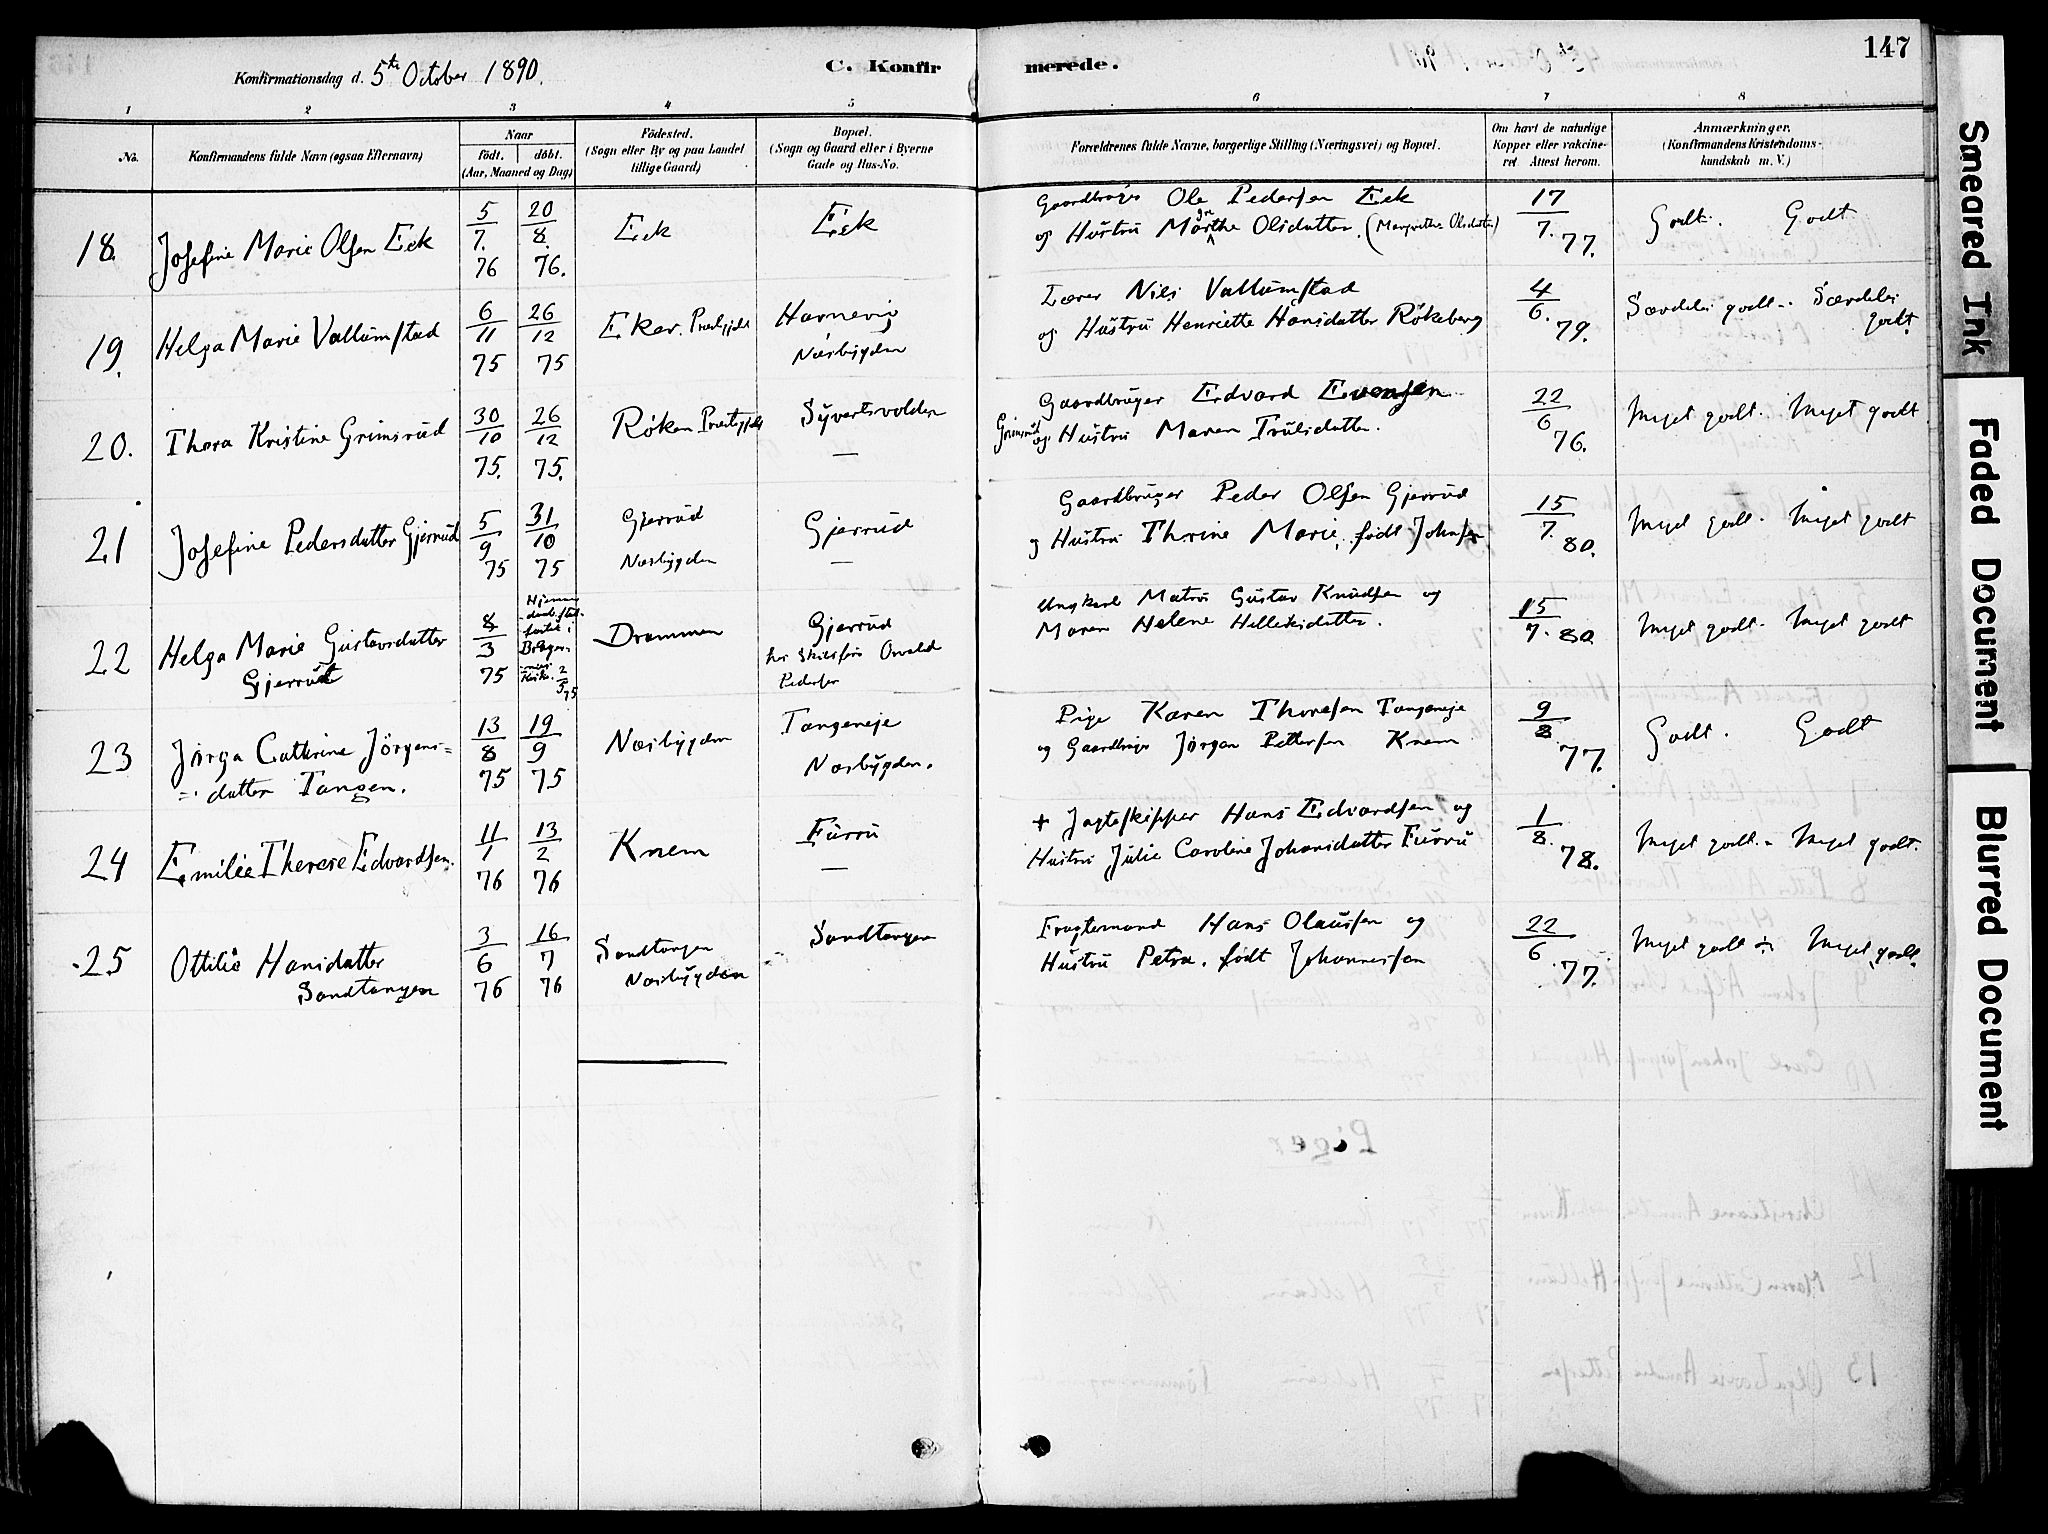 147
Konfirmationsdag d. 5te October 1890.
C. Konfirmerede.
1 2 3 4 5 6 7 8
No.
Konfirmandens fulde Navn (ogsaa Efternavn)
Naar
født. døbt.
(Aar, Maaned og Dag)
Fødested.
(Sogn eller By og paa Landet
tillige Gaard)
Bopæl.
(Sogn og Gaard eller i Byerne
Gade og Hus-No.
Forældrenes fulde Navne, borgerlige Stilling (Næringsvei) og Bopæl.
Om havt de naturlige
Kopper eller vakcine-
ret. Attest herom.
Anmærkninger.
(Konfirmandens Kristendoms-
kundskab m. V.)
18. Josefine Marie Olsen Eek
5/7. 76 20/8. 76.
Eek
Eek
Gaardbruger Ole Pedersen Eek
og Hustru Marthe Olsdatter. (Margrethe Olsdatter)
17/7. 77.
Godt. Godt
19. Helga Marie Vallumstad
6/11 75 26/12 75
Eker. Præstgjeld
Havnevig
Næsbygden
Lærer Nils Vallumstad
og Hustru Henriette Hansdatter Rökeberg
4/6. 79.
Særdeles godt. Særdeles
godt.
20. Thora Kristine Grimsrud
30/10 75. 26/12 75.
Röken Præstegjeld
Syvertsvolden
—
Gaardbruger Edvard Evensen
Grimsrud og Hustru Maren Trulsdatter.
22/6 76.
Meget godt. Meget godt
21 Josefine Pedersdatter Gjerrud
5/9 75 31/10 75
Gjerrud
Næsbygden
Gjerrud
—
Gaardbruger Peder Olsen Gjerrud
og Hustru Thrine Marie, født Johnsen
15/7. 80.
Meget godt. Meget godt
22 Helga Marie Gustavsdatter
Gjerrud
8/3 75
Hjemme-
døbt
i
Kirke. 2/5 75
Drammen
Gjerrud
hos Osvald
Pedersen
Ungkarl Matros Gustav Knudsen og
Maren Helene Helleksdatter.
15/7. 80.
Meget godt. Meget godt
23 Jørga Cathrine Jörgens=
=datter Tangen.
13/8 75 19/9 75
Næsbygden
Tangeneje
Næsbygden.
Pige Karen Thoresen Tangeneje
og Gaardbruger Jørgen Pettersen Knem
9/8 77.
Godt. Godt
24 Emilie Therese Edvardsen.
11/1 76 13/2 76
Knem
Furru
—
+ Jagteskipper Hans Edvardsen og
Hustru Julie Caroline Johansdatter Furru
1/8. 78.
Meget godt. Meget godt.
25 Ottilie Hansdatter
Sandtangen
3/6 76 16/7 76
Sandtangen
Næsbygden
Sandtangen
Fragtemand Hans Olaussen og
Hustru Petra, født Johannessen
22/6 77.
Meget godt Meget godt.
Smeared Ink
Faded Document
Blurred Document